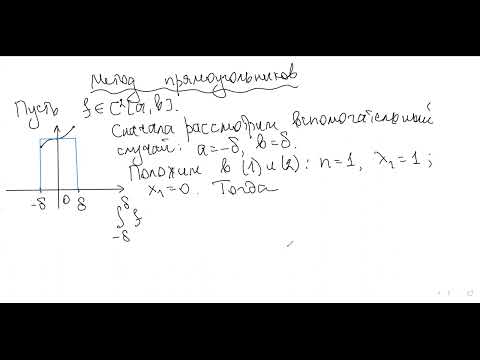 Метод прямоугольников
Пусть f ∈ C²[a,b].
Сначала рассмотрим вспомогательный
случай: a=-δ, b=δ.
Положим в (1) и (2): n=1, λ₁=1;
x₁=0. Тогда
-δ 0 δ
∫_{-δ}^{δ} f